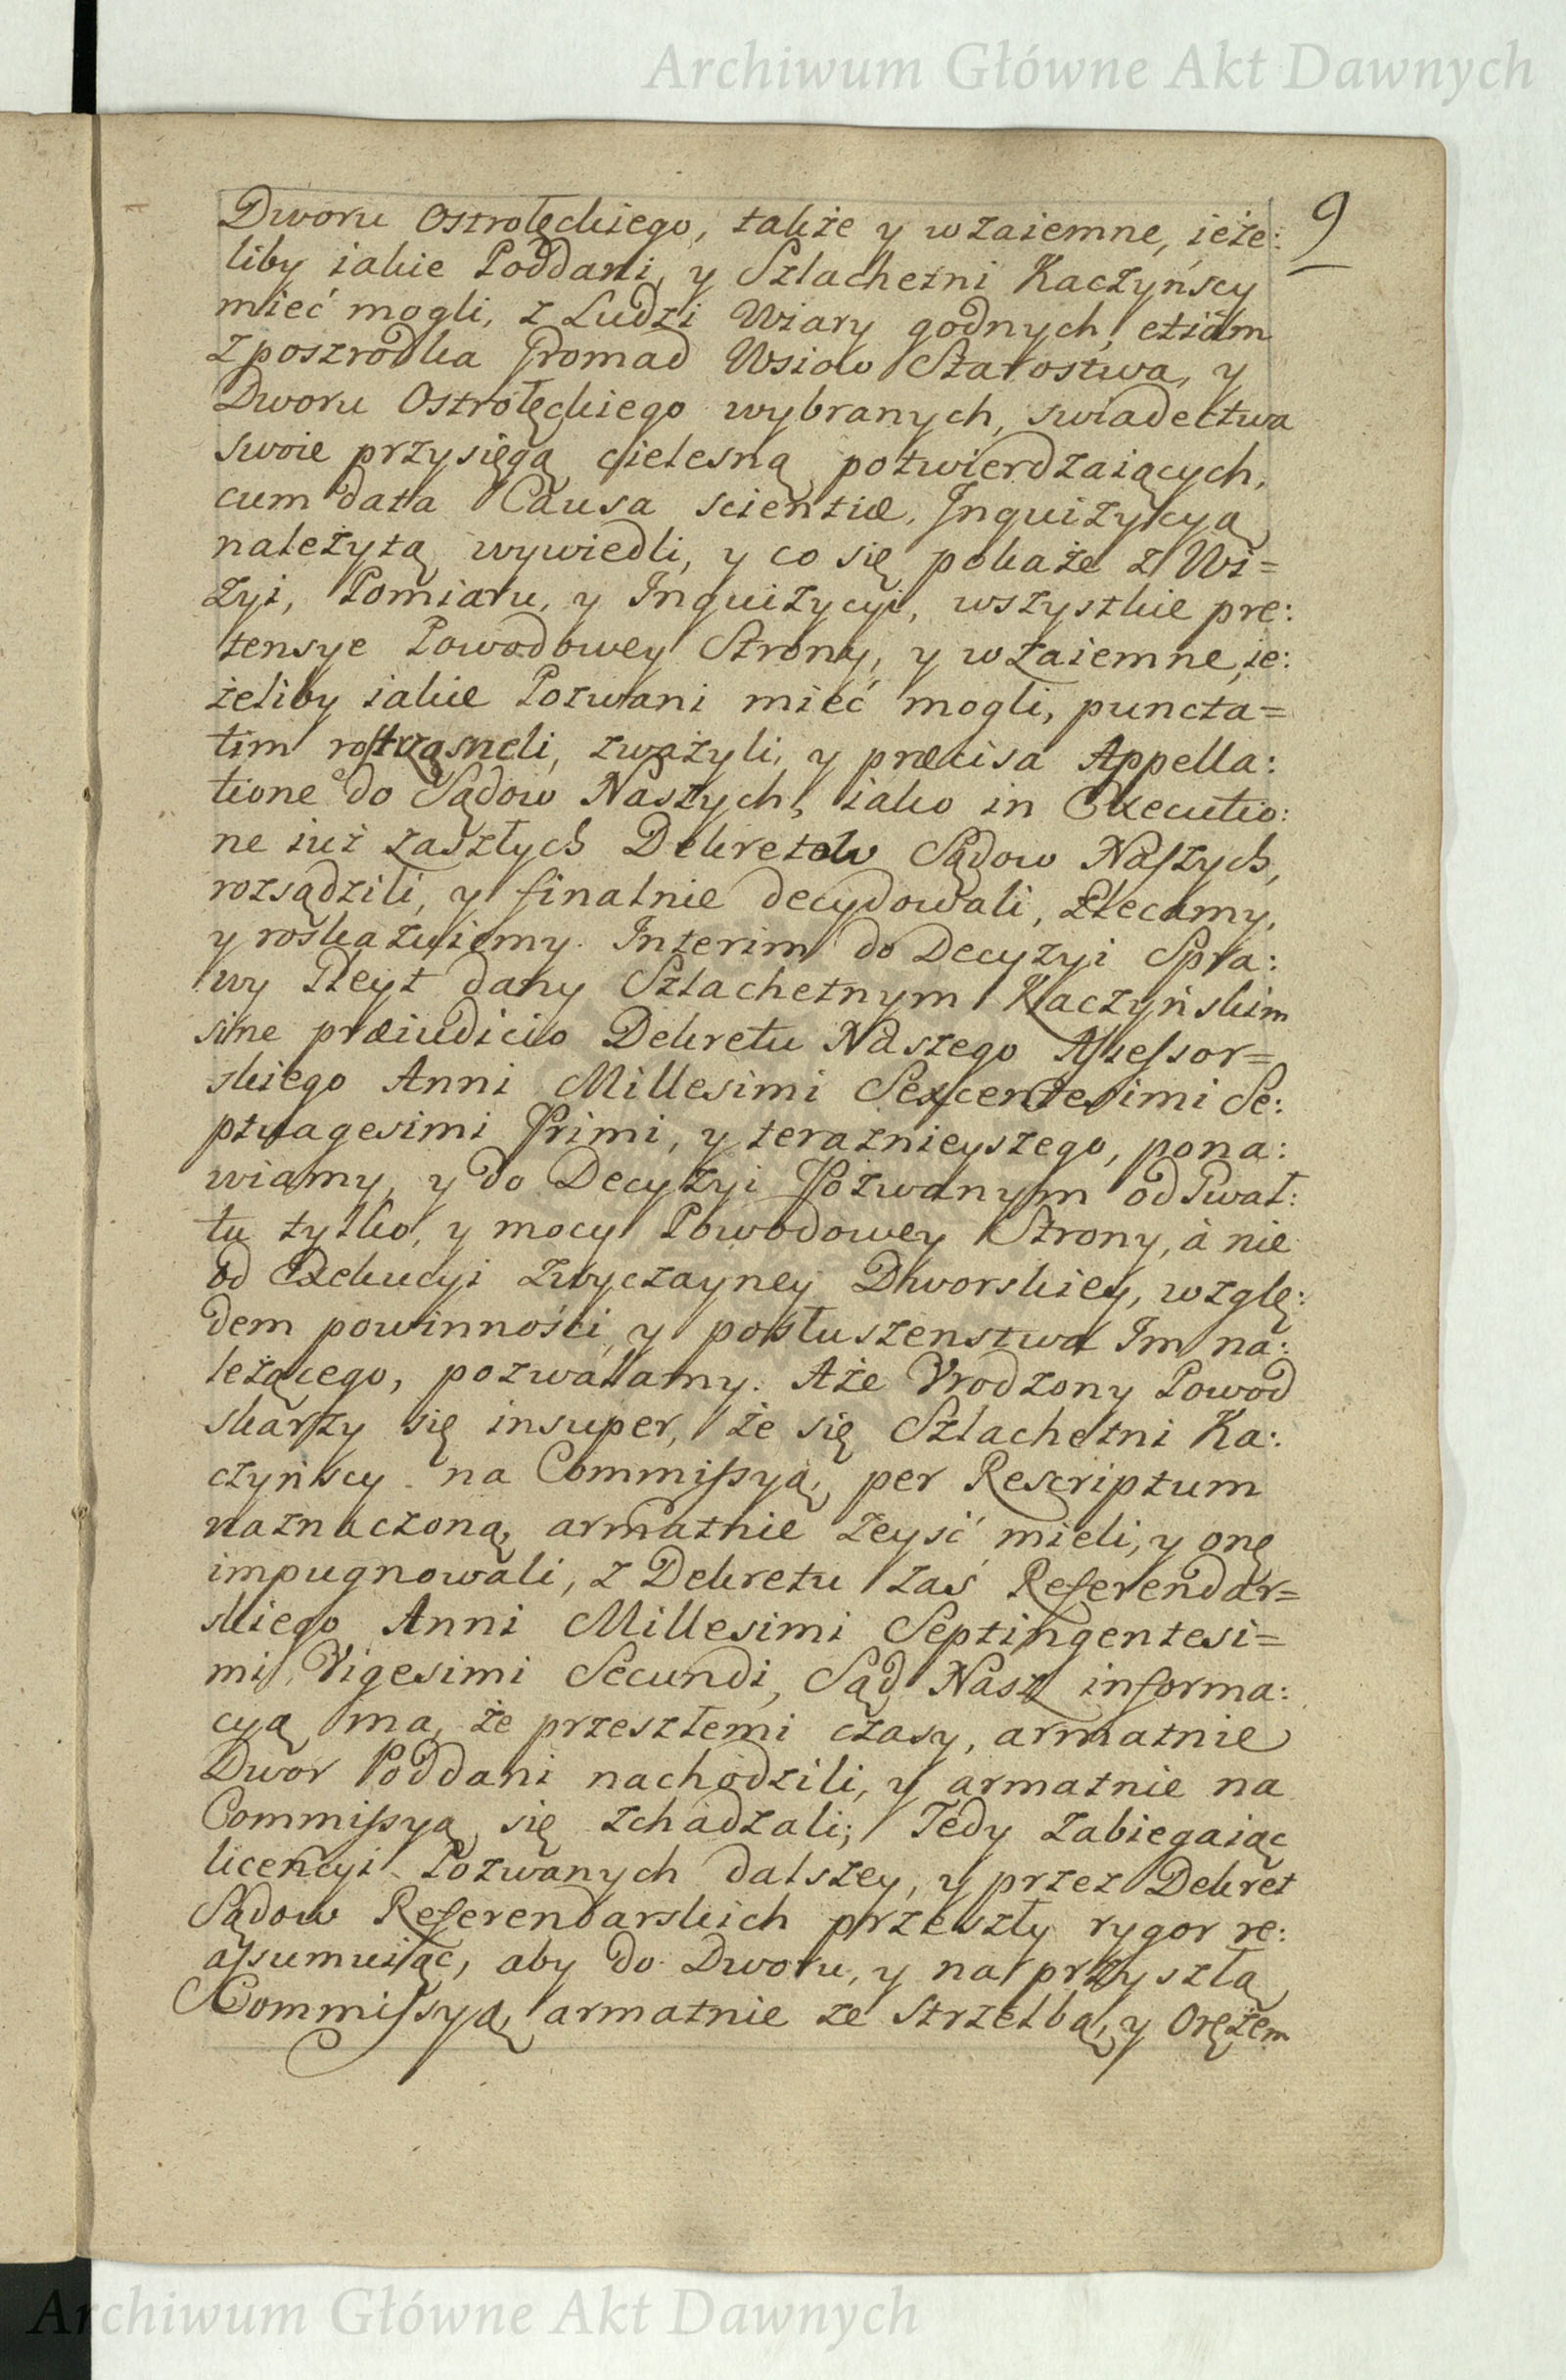 Archiwum Główne Akt Dawnych
9
Dworu Ostrołęckiego, także y wzaiemne, ieże:
liby iakie Poddani, y Szlachetni Kaczyńscy
mieć mogli, z Ludzi Wiary godnych, etiam
z poszrodka Gromad Wsiow Starostwa, y
Dworu Ostrołęckiego wybranych, swiadectwa
swoie przysięgą cielesną potwierdzaiących,
cum data Causa scientiæ, Inquizycyą
należytą wywiedli, y co się pokaże z Wi=
zyi, Pomiaru, y Inquizycyi, wszystkie pre:
tensye Powodowey Strony, y wzaiemne, ie:
żeliby iakie Pozwani mieć mogli, puncta=
tim roztrząsneli, zważyli, y præcisa Appella:
tione do Sądow Naszych, iako in Executio:
ne iuż zaszłych Dekretow Sądow Naszych,
rozsądzili, y finalnie decydowali, zlecamy,
y roskazuiemy. Interim do Decyzyi Spra:
wy Gleyt dany Szlachetnym Kaczyńskim
sine præiudicio Dekretu Naszego Assessor=
skiego Anni Millesimi Sexcentesimi Se:
ptuagesimi Primi, y teraznieyszego, pona:
wiamy, y do Decyzyi Pozwanym od Gwał:
tu tylko, y mocy Powodowey Strony, à nie
od Exekucyi zwyczayney Dworskiey, wzglę:
dem powinności, y posłuszenstwa Im na:
leżącego, pozwalamy. Aże Vrodzony Powod
skarży się insuper, że się Szlachetni Ka:
czyńscy na Commissyą, per Rescriptum
naznaczoną, armatnie zeyść mieli, y onę
impugnowali, z Dekretu zaś Referendar=
skiego Anni Millesimi Septingentesi=
mi Vigesimi Secundi, Sąd Nasz informa:
cyą ma, że przeszłemi czasy, armatnie
Dwor Poddani nachodzili, y armatnie na
Commissyą się zchadzali; Tedy zabiegaiąc
licencyi Pozwanych dalszey, y przez Dekret
Sądow Referendarskich przeszły rygor re:
assumuiąc, aby do Dworu, y na przyszłą
Commissyą, armatnie ze Strzelbą, y Orężem
Archiwum Główne Akt Dawnych